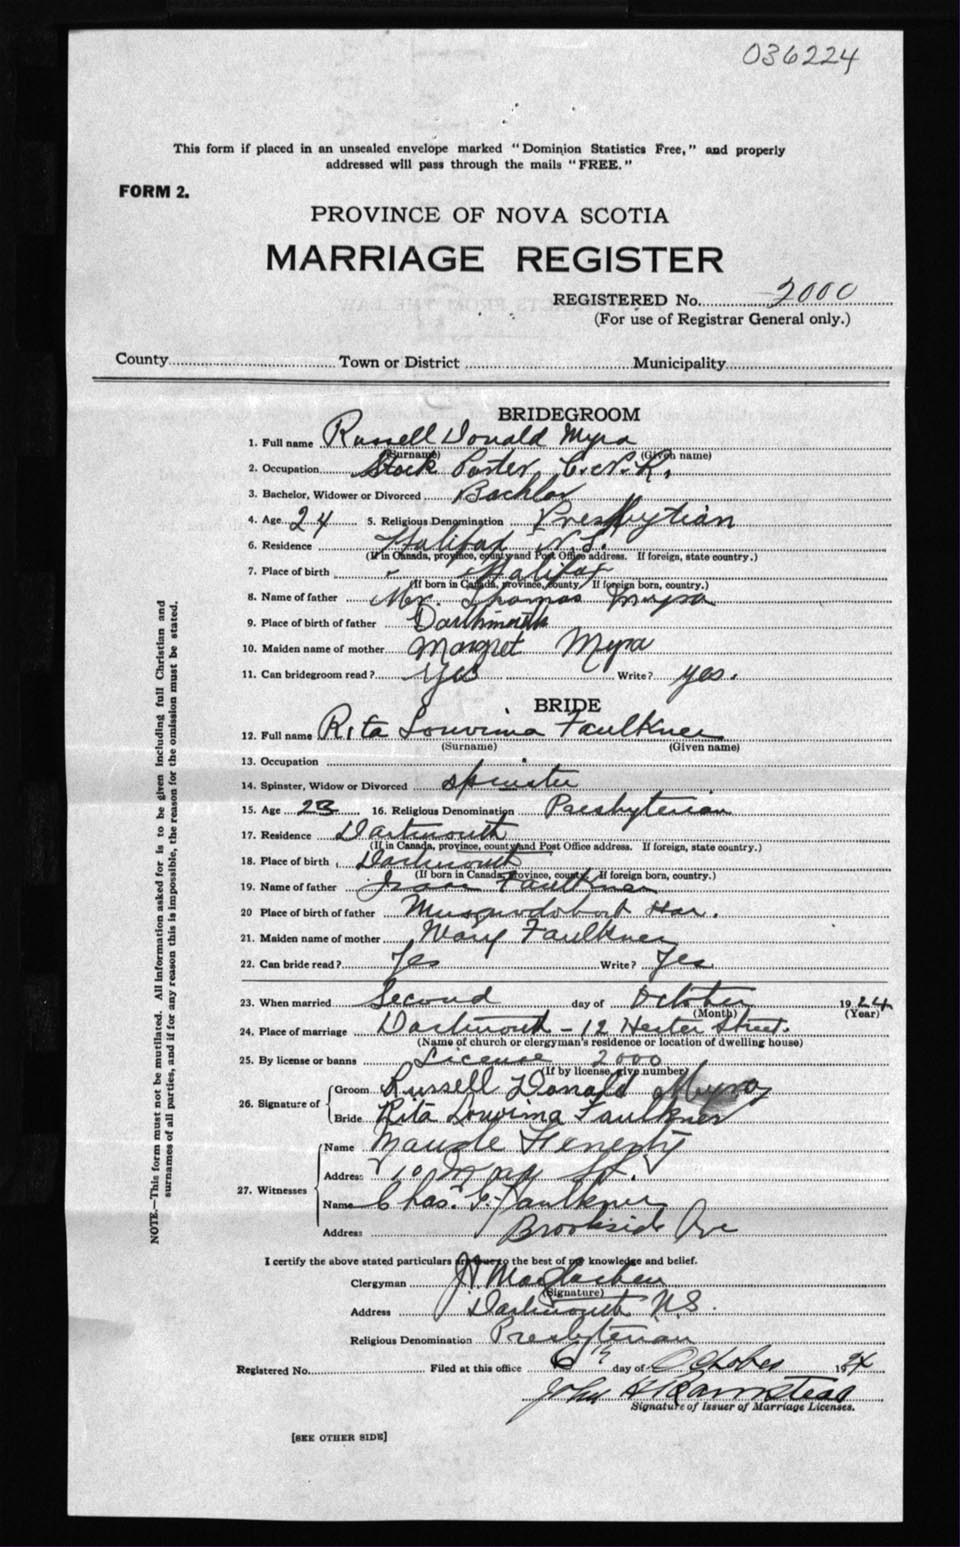 036224
This form if placed in an unsealed envelope marked "Dominion Statistics Free," and properly
addressed will pass through the mails "FREE."
FORM 2.
PROVINCE OF NOVA SCOTIA
MARRIAGE REGISTER
REGISTERED No. 2000
(For use of Registrar General only.)
County Town or District Municipality
BRIDEGROOM
1. Full name Russell Donald Myra
(Surname) (Given name)
2. Occupation Stock Porter, C.N.R.
3. Bachelor, Widower or Divorced Bachlor
4. Age 24 5. Religious Denomination Presbytian
6. Residence Halifax N.S.
(If in Canada, province, county and Post Office address. If foreign, state country.)
7. Place of birth " Halifax
(If born in Canada, province, county. If foreign born, country.)
8. Name of father Mr. Thomas Myra
9. Place of birth of father Dartmouth
10. Maiden name of mother Margret Myra
11. Can bridegroom read? Yes Write? yes.
BRIDE
12. Full name Rita Louvima Faulkner
(Surname) (Given name)
13. Occupation
14. Spinster, Widow or Divorced spinster
15. Age 23 16. Religious Denomination Presbyterian
17. Residence Dartmouth
(If in Canada, province, county and Post Office address. If foreign, state country.)
18. Place of birth Dartmouth
(If born in Canada, province, county. If foreign born, country.)
19. Name of father Isaac Faulkner
20 Place of birth of father Musquodoboit Har.
21. Maiden name of mother Mary Faulkner
22. Can bride read? Yes Write? Yes
23. When married Second day of October 1924
(Month) (Year)
24. Place of marriage Dartmouth - 12 Hester Street.
(Name of church or clergyman's residence or location of dwelling house)
25. By license or banns License 2000
(If by license, give number)
26. Signature of Groom Russell Donald Myra
Bride Rita Louvima Faulkner
27. Witnesses Name Maude Fenerty
Address 10 St.
Name Chas. F. Faulkner
Address Brookside Ave
I certify the above stated particulars are true to the best of my knowledge and belief.
Clergyman
(Signature)
Address Dartmouth N.S.
Religious Denomination Presbyterian
Registered No. Filed at this office 6th day of October 1924
John H
Signature of Issuer of Marriage Licenses.
[SEE OTHER SIDE]
NOTE.—This form must not be mutilated. All information asked for is to be given including full Christian and
surnames of all parties, and if for any reason this is impossible, the reason for the omission must be stated.